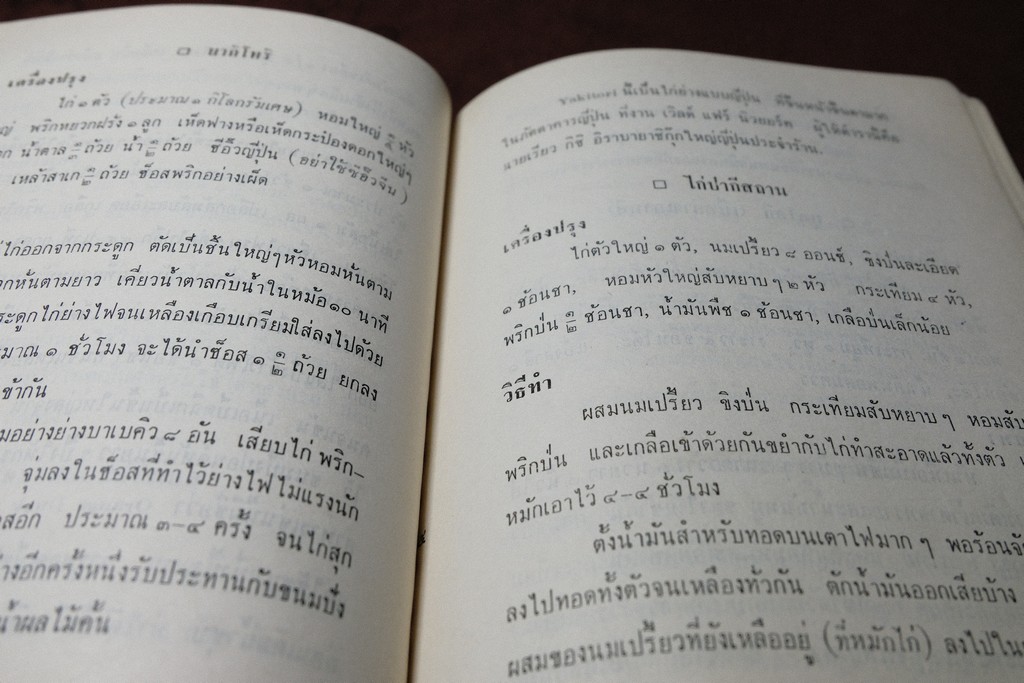 □ ยากิโทริ
เครื่องปรุง
ไก่ ๑ ตัว (ประมาณ ๑ กิโลกรัมเศษ) หอมใหญ่ ๕ หัว
พริกหยวกฝรั่ง ๑ ลูก เห็ดฟางหรือเห็ดกระป๋องดอกใหญ่ๆ
น้ำตาล ๑/๓ ถ้วย น้ำ ๑/๒ ถ้วย ซีอิ๊วญี่ปุ่น (อย่าใช้ซีอิ๊วจีน)
เหล้าสาเก ๑/๒ ถ้วย ซ็อสพริกอย่างเผ็ด
ไก่ออกจากกระดูก ตัดเป็นชิ้นใหญ่ๆ หัวหอมหั่นตาม
หั่นตามยาว เคี่ยวน้ำตาลกับน้ำในหม้อ ๑๐ นาที
ระดูกไก่ย่างไฟจนเหลืองเกือบเกรียมใส่ลงไปด้วย
มาณ ๑ ชั่วโมง จะได้น้ำซ็อส ๑ ๑/๒ ถ้วย ยกลง
ข้ากัน
อย่างย่างบาเบคิว ๘ อัน เสียบไก่ พริก–
จุ่มลงในซ็อสที่ทำไว้ย่างไฟไม่แรงนัก
สอีก ประมาณ ๓–๔ ครั้ง จนไก่สุก
างอีกครั้งหนึ่งรับประทานกับขนมปัง
น้ำผลไม้คั้น
Yakitori นี้เป็นไก่ย่างแบบญี่ปุ่น
ในภัตตาคารญี่ปุ่น ที่งาน เวิลด์ แฟร์ นิวยอร์ค ผู้ให้ตำรานี้คือ
นายเรียว กิชิ อิราบายาชิกุ๊กใหญ่ญี่ปุ่นประจำร้าน.
□ ไก่ปากีสถาน
เครื่องปรุง
ไก่ตัวใหญ่ ๑ ตัว, นมเปรี้ยว ๘ ออนซ์, ขิงป่นละเอียด
๑ ช้อนชา, หอมหัวใหญ่สับหยาบๆ ๒ หัว กระเทียม ๔ หัว,
พริกป่น ๑/๒ ช้อนชา, น้ำมันพืช ๑ ช้อนชา, เกลือป่นเล็กน้อย
วิธีทำ
ผสมนมเปรี้ยว ขิงป่น กระเทียมสับหยาบๆ หอมสับ
พริกป่น และเกลือเข้าด้วยกันขยำกับไก่ทำสะอาดแล้วทั้งตัว
หมักเอาไว้ ๔–๔ ชั่วโมง
ตั้งน้ำมันสำหรับทอดบนเตาไฟมากๆ พอร้อนจั
ลงไปทอดทั้งตัวจนเหลืองทั่วกัน ตักน้ำมันออกเสียบ้าง
ผสมของนมเปรี้ยวที่ยังเหลืออยู่ (ที่หมักไก่) ลงไปใน